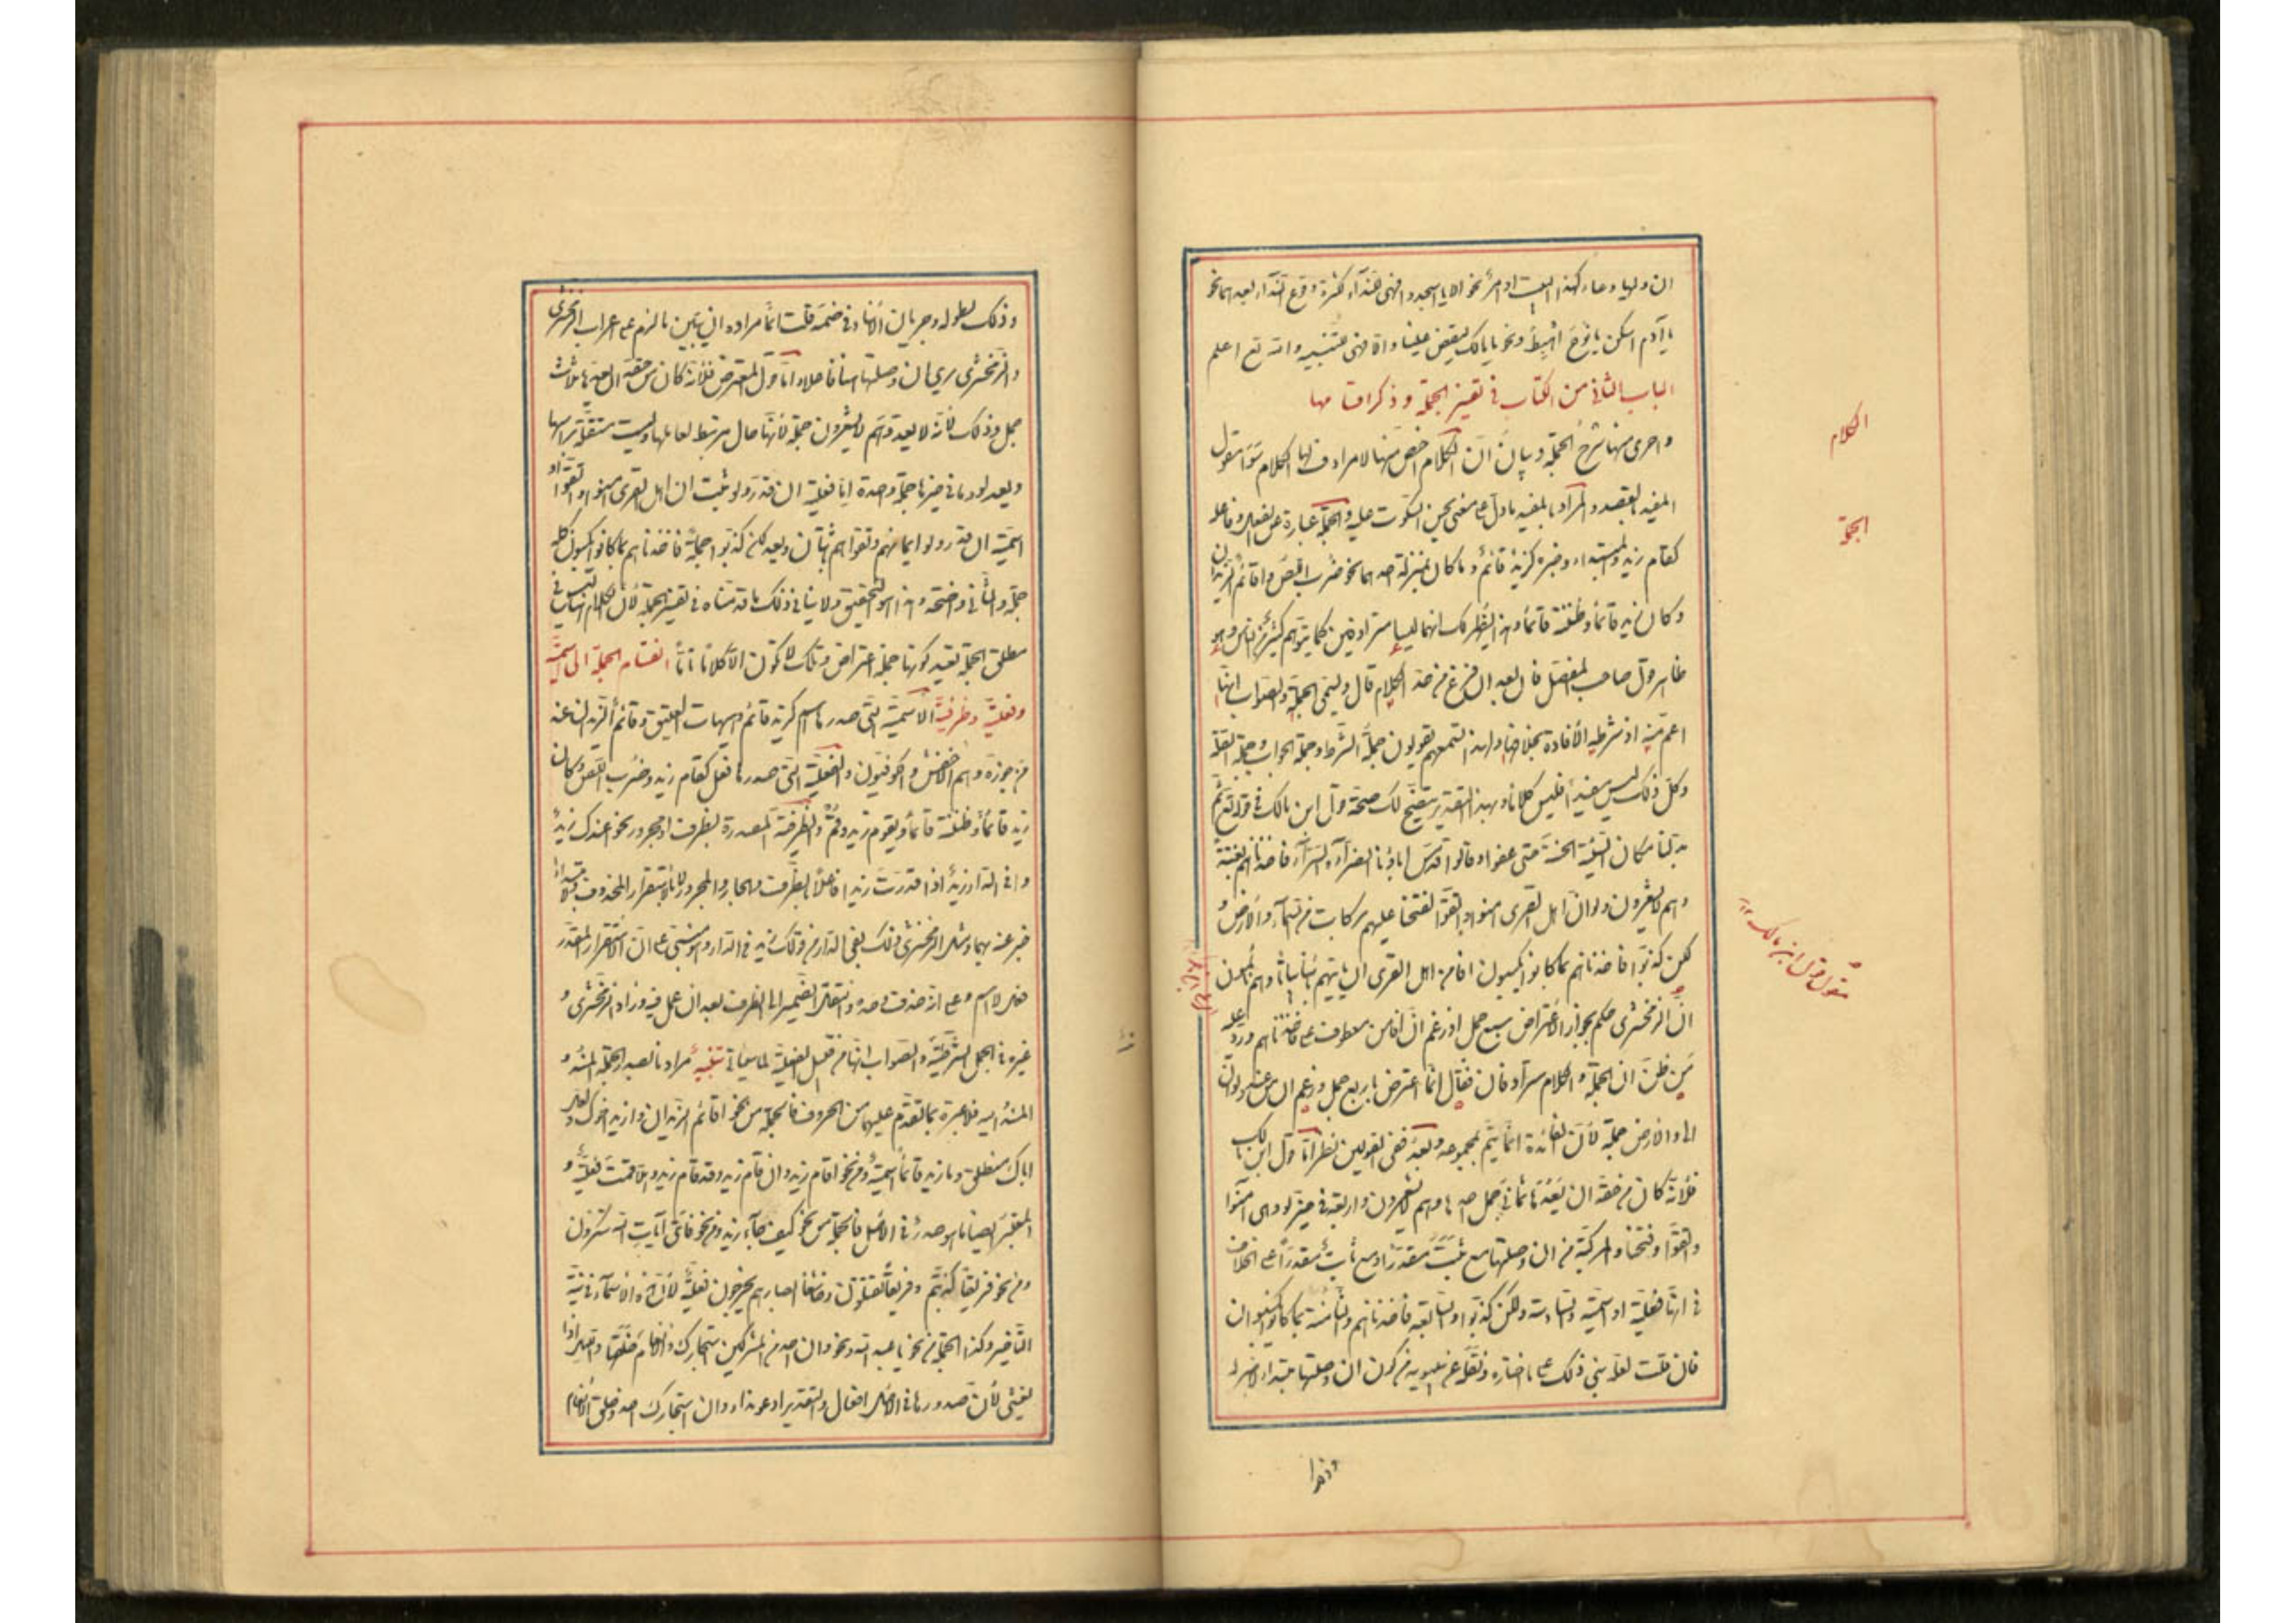 ان وليها دعاء كهذا البيت او امر نحو الا يا اسجدوا فهي للنداء لكثرة وقوع النداء بعدهما نحو
يا آدم اسكن يا نوح اهبط ونحو يا مالك ليقض علينا والا فهي للتنبيه والله تع اعلم
الباب الثاني من الكتاب في تفسير الجملة وذكر اقسامها
واحرى منها شرح الجملة وبيان ان الكلام اخص منها لا مرادف لها الكلام هو القول
المفيد بالقصد والمراد بالمفيد ما دل على معنى يحسن السكوت عليه والجملة عبارة عن الفعل وفاعله
كقام زيد والمبتداء وخبره كزيد قائم وما كان بمنزلة احدهما نحو ضرب اللص واقائم الزيدان
وكان زيد قائما وظننته قائما وبهذا يظهر لك انهما ليسا مترادفين كما يتوهم كثير من الناس وهو
ظاهر قول صاحب المفصل فان بعد ان فرغ من حد الكلام قال ويسمى الجملة والصواب انها
اعم منه اذ شرطه الافادة بخلافها ولهذا تسمعهم يقولون جملة الشرط وجملة الجواب وجملة الصلة
وكل ذلك ليس مفيدا فليس كلاما وبهذا التقرير يتضح لك صحة قول ابن مالك في قوله تع ثم
بدلنا مكان السيئة الحسنة حتى عفوا وقالوا قد مس اباءنا الضراء والسراء فاخذناهم بغتة
وهم لا يشعرون ولو ان اهل القرى امنوا واتقوا لفتحنا عليهم بركات من السماء والارض و
لكن كذبوا فاخذناهم بما كانوا يكسبون افامن اهل القرى ان ياتيهم باسنا بياتا وهم نائمون
ان الزمخشري حكم بجواز الاعتراض بسبع جمل اذ زعم ان افامن معطوف على فاخذناهم ورد عليه
من ظن ان الجملة والكلام مترادفان فقال انما اعترض باربع جمل وزعم ان من عند ولو ان
الى والارض جملة لان الفائدة انما تتم بمجموعه وبعد ففي القولين نظر اما قول ابن مالك
فلانه كان من حقه ان يعدها ثماني جمل احدها وهم لا يشعرون واربعة في حيز لو وهي آمنوا
واتقوا وفتحنا والمركبة من ان وصلتها مع ثبت مقدرا او مع ثابت مقدرا على الخلاف
في انها فعلية او اسمية والسادسة ولكن كذبوا والسابعة فاخذناهم والثامنة بما كانوا يكسبون
فان قلت لعله بنى ذلك على ما اختاره ونقله عن سيبويه من كون ان وصلتها مبتداء لا خبر له
وذلك
الكلام
الجملة
قول ابن مالك
وذلك لطوله وجريان الاسناد في ضمنه قلت انما مراده ان يبين ما لزم على اعراب الزمخشري
والزمخشري يرى ان وصلتها هنا فاعلا واما قول المعترض فلانه كان من حقه ان يعدها ثلاث
جمل وذلك لانه لا يعد وهم لا يشعرون جملة لانها حال مرتبط بعاملها وليست مستقلة براسها
ويعد لو وما في حيزها جملة واحدة اما فعلية ان قدر ولو ثبت ان اهل القرى امنوا واتقوا او
اسمية ان قدر ولو ايمانهم وتقواهم ثابتان ويعد لكن كذبوا جملة فاخذناهم بما كانوا يكسبون كله
جملة والثاني واضحة وهذا هو التحقيق ولا ينافي ذلك ما قدمناه في تفسير الجملة لان الكلام هنا ليس في
مطلق الجملة بقيد كونها جملة اعتراض وتلك لا تكون الا كلاما تاما انقسام الجملة الى اسمية
وفعلية وظرفية الاسمية التي صدرها اسم كزيد قائم وهيهات العقيق وقائم الزيدان عند
من جوزه وهم الاخفش والكوفيون والفعلية التي صدرها فعل كقام زيد وضرب اللص وكان
زيد قائما وظننته قائما ويقوم زيد وقم والظرفية المصدرة بظرف او مجرور نحو اعندك زيد
وافي الدار زيد اذا قدرت زيدا فاعلا بالظرف والجار والمجرور لا بالاستقرار المحذوف ولا مبتداء
خبر عنه بهما ومثل الزمخشري لذلك بفي الدار من قولك زيد في الدار وهو مبني على ان الاستقرار المقدر
فعل لا اسم وعلى انه حذف وحده وانتقل الضمير الى الظرف بعد ان عمل فيه وزاد الزمخشري و
غيره في الجمل الشرطية والصواب انها من قبيل الفعلية لما سياتي تنبيه مرادنا بصدر الجملة المسند و
المسند اليه فلا عبرة بما تقدم عليهما من الحروف فالجملة من نحو اقائم الزيدان وازيد اخوك ولعل
اباك منطلق وما زيد قائما اسمية ومن نحو اقام زيد وان قام زيد وقد قام زيد وهلا قمت فعلية و
المعتبر ايضا ما هو صدر في الاصل فالجملة من نحو كيف جاء زيد ومن نحو فاي آيات الله تنكرون
ومن نحو فريقا كذبتم وفريقا تقتلون وخاشعا ابصارهم يخرجون فعلية لان هذه الاسماء في نية
التاخير وكذا الجملة من نحو يا عبد الله ونحو وان احد من المشركين استجارك والانعام خلقها والليل اذا
يغشى لان صدورها في الاصل افعال والتقدير ادعو عبد الله وان استجارك احد وخلق الانعام